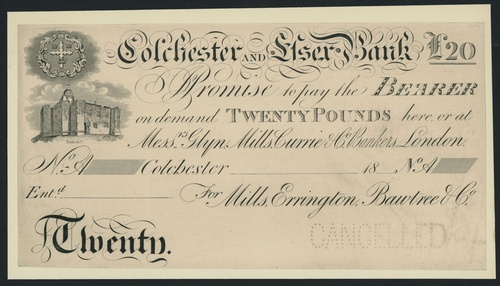 Colchester AND Essex Bank £20
I Promise to pay the BEARER
on demand TWENTY POUNDS here, or at
Mess.rs Glyn, Mills, Currie & Co. Bankers, London.
No. A Colchester 18 No. A
Ent.d For Mills, Errington, Bawtree & Co.
Twenty.
CANCELLED